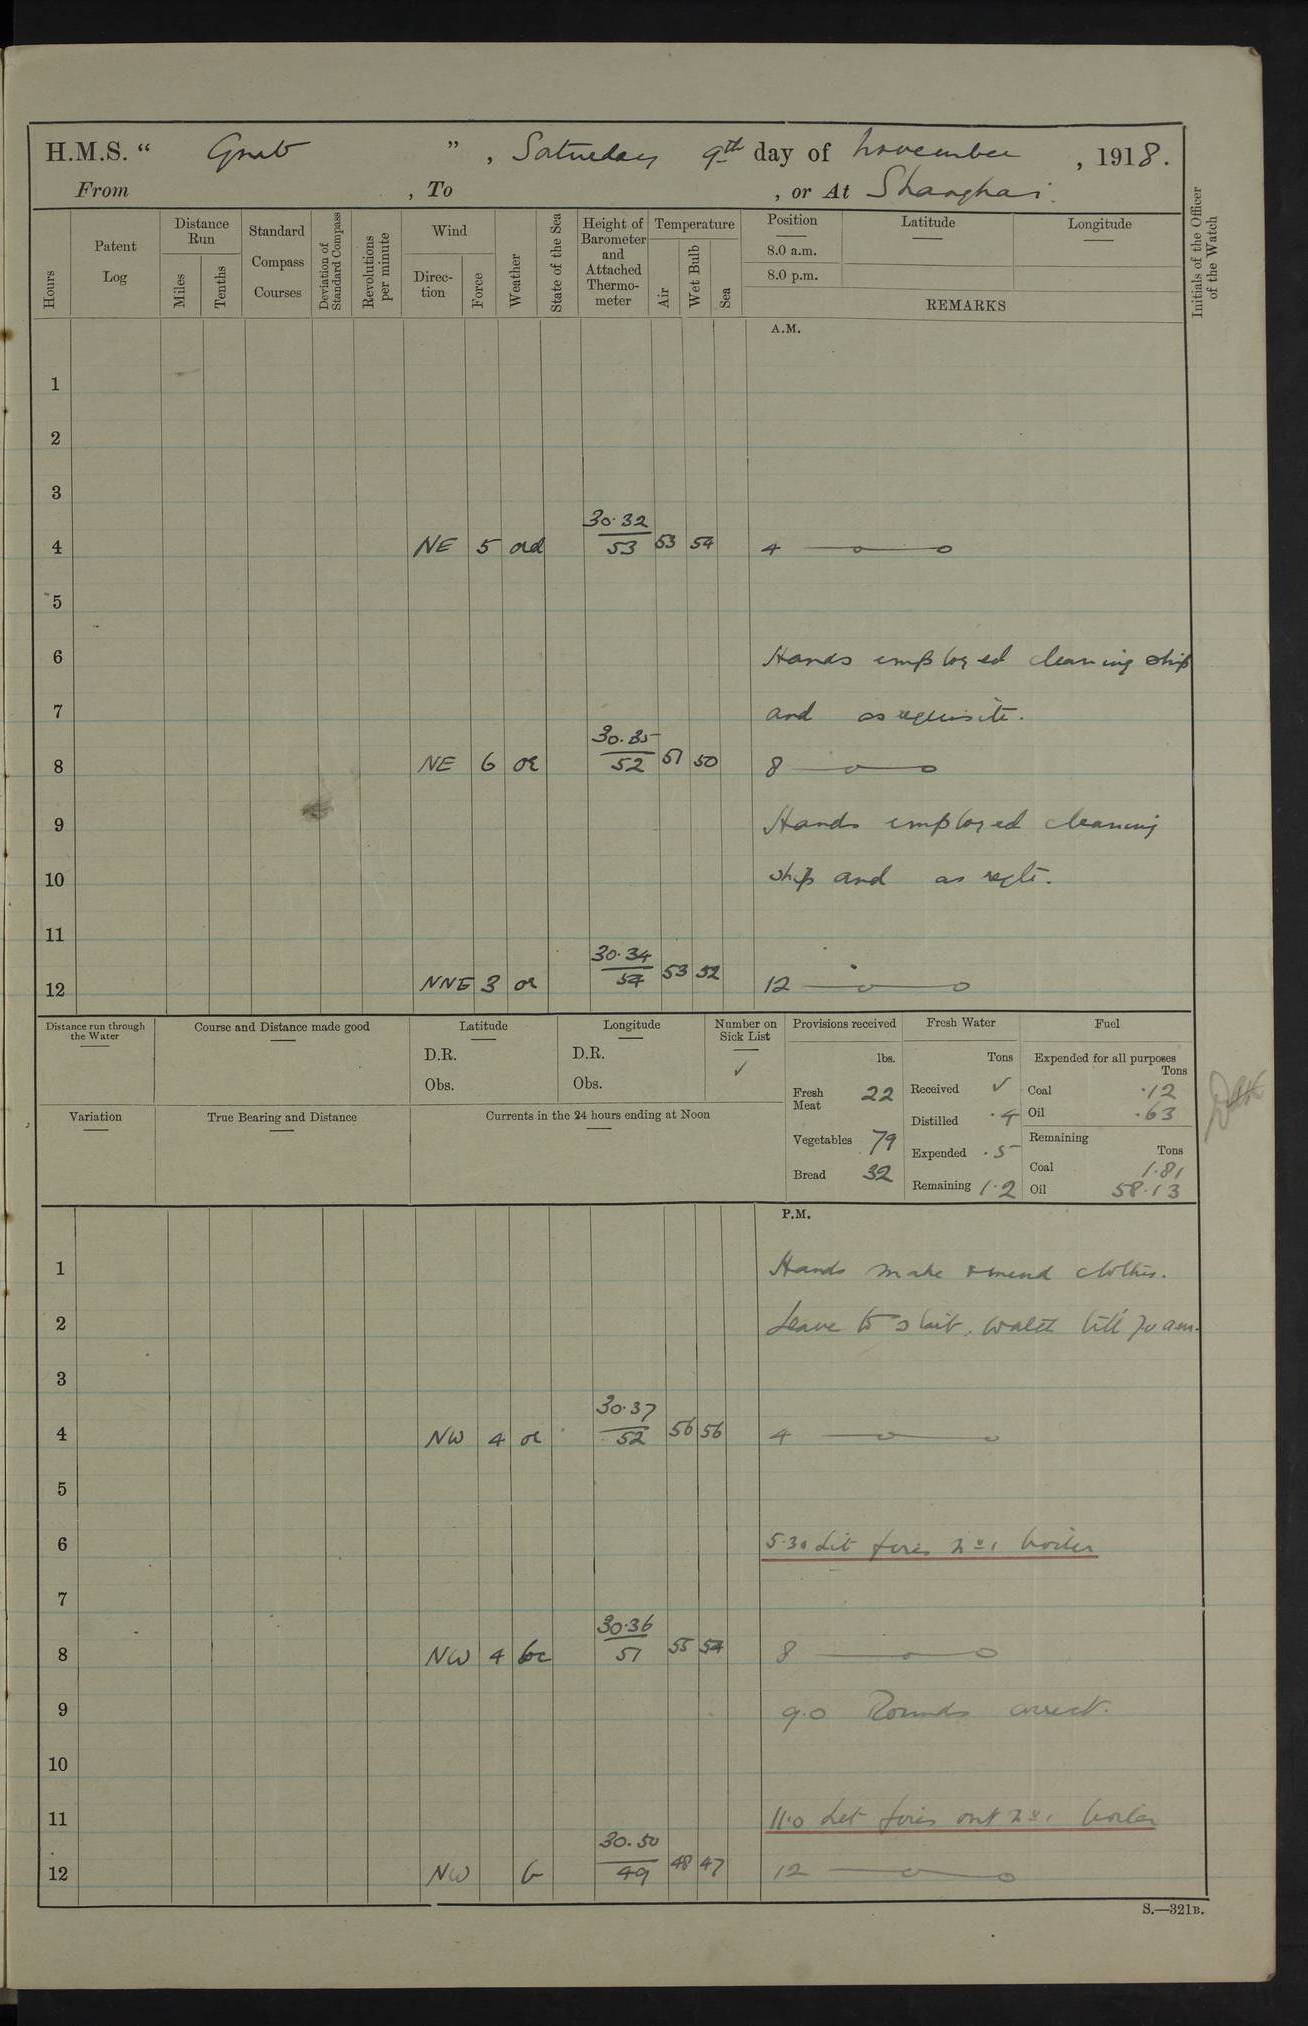 H.M.S. “ Gnat ” , Saturday 9th day of November , 1918.
From , To , or At Shanghai.
Hours
Patent Log
Distance Run
Miles
Tenths
Standard Compass Courses
Deviation of Standard Compass
Revolutions per minute
Wind
Direction
Force
Weather
State of the Sea
Height of Barometer and Attached Thermometer
Temperature
Air
Wet Bulb
Sea
Position
8.0 a.m.
8.0 p.m.
Latitude
Longitude
REMARKS
Initials of the Officer of the Watch
A.M.
1
2
3
30.32
4 NE 5 53 53 54 4
5
6 Hands employed cleaning ship
7 and as requisite.
30.35
8 NE 6 oc 52 51 50 8
9 Hands employed cleaning
10 ship and as reqte.
11
30.34
12 NNE 3 oc 54 53 52 12
Distance run through the Water
Course and Distance made good
Latitude
D.R.
Obs.
Longitude
D.R.
Obs.
Number on Sick List
✓
Variation
True Bearing and Distance
Currents in the 24 hours ending at Noon
Provisions received
lbs.
Fresh Meat 22
Vegetables 79
Bread 32
Fresh Water
Tons
Received ✓
Distilled .4
Expended .5
Remaining 1.2
Fuel
Expended for all purposes
Tons
Coal .12
Oil .63
Remaining
Tons
Coal 1.81
Oil 58.13
P.M.
1 Hands make & mend clothes.
2 Leave to watch till 7.0 am.
3
30.37
4 NW 4 oc 52 56 56 4
5
6 5.30 Lit fires No 1 boiler
7
30.36
8 NW 4 bc 51 55 54 8
9 9.0 Rounds correct.
10
11 11.0 Let fires out No 1 boiler
30.50
12 NW b 49 48 47 12
S.—321B.